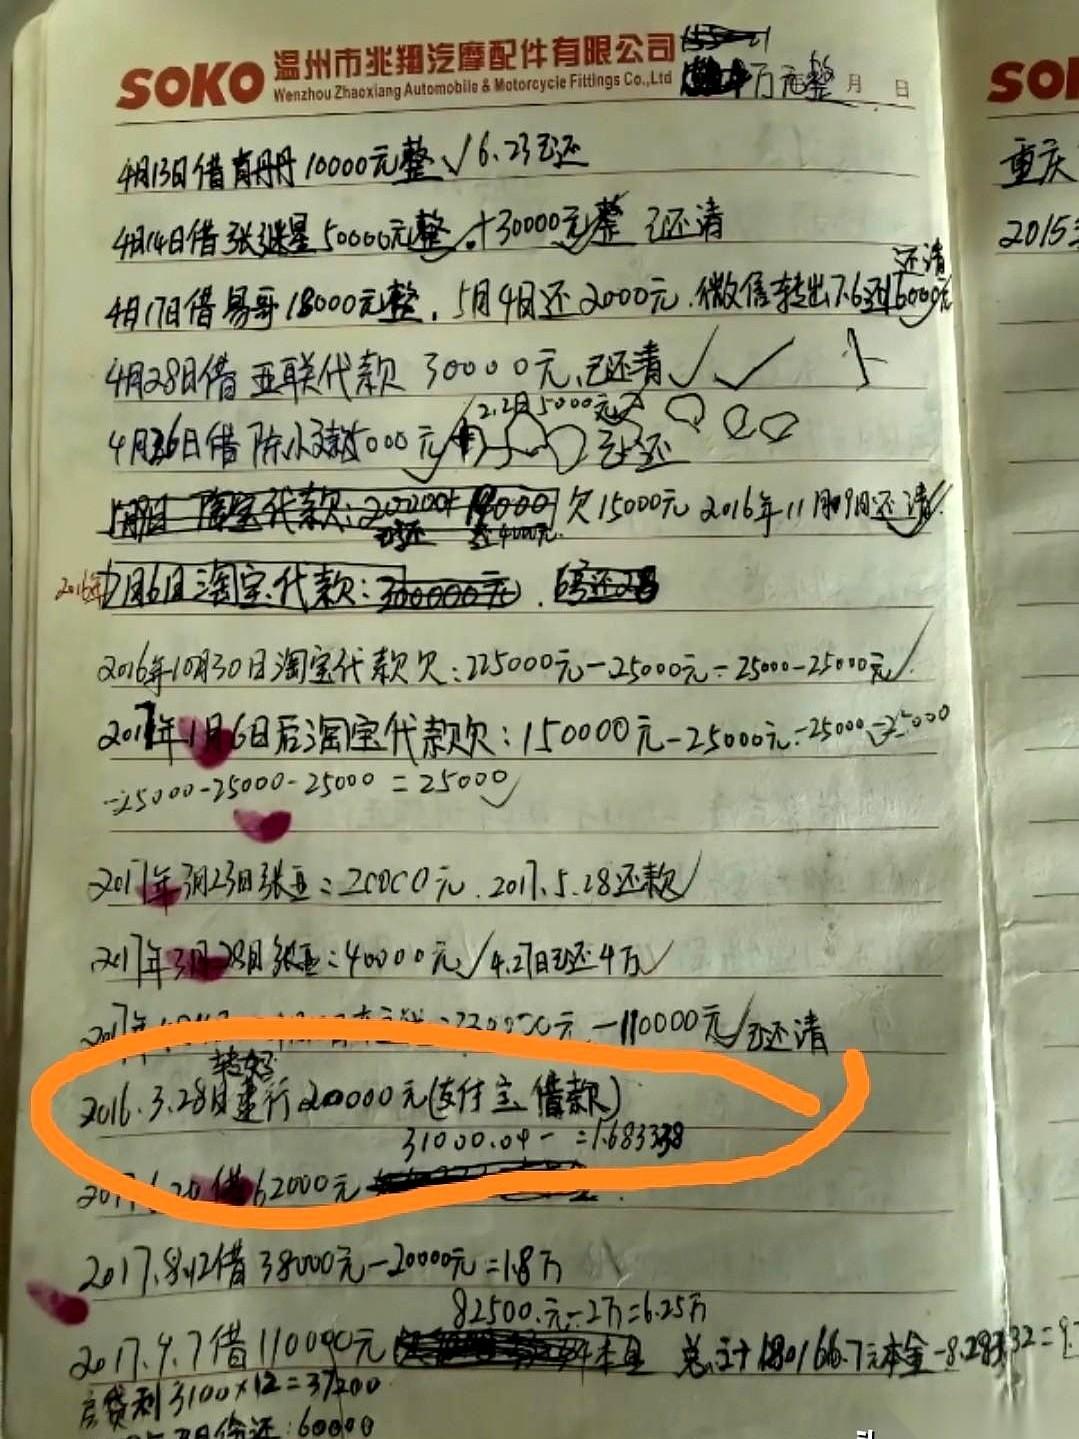 SOKO 温州市兆翔汽摩配件有限公司
Wenzhou Zhaoxiang Automobile & Motorcycle Fittings Co.,Ltd
万元整 月 日
4月13日借肖丹丹10000元整√6.23已还
4月14日借张继星50000元整√+30000元整 已还清
还清
4月17日借易哥18000元整,5月4日还2000元.微信转出7.6还16000元
4月28日借亚联代款 30000元,已还清√√
2.2日5000元
4月26日借陈小 5000元 已还
淘宝代款:200000+ 欠15000元 2016年11月09日还清√
已还 4000元
2016年7月6日淘宝代款:300000元.
2016年10月30日淘宝代款欠:225000元-25000元-25000-25000元√
2017年1月6日后淘宝代款欠:150000元-25000元-25000-25000
-25000-25000-25000=25000√
2017年3月23日张亚:20000元.2017.5.28还款√
2017年3月28日张亚:40000元√4.27日已还4万√
2017年 元-110000元√已还清
转妈
2016.3.28日建行20000元(支付宝借款)
31000.04- =1.683338
2017.6.20借62000元
2017.8.12借38000元-20000元=1.8万
82500.元-2万=6.25万
2017.9.7借110000元 本金 总计180166.7元本金-8.28332=9.
房贷利3100×12=37200
还:60000
SO
重庆
2015